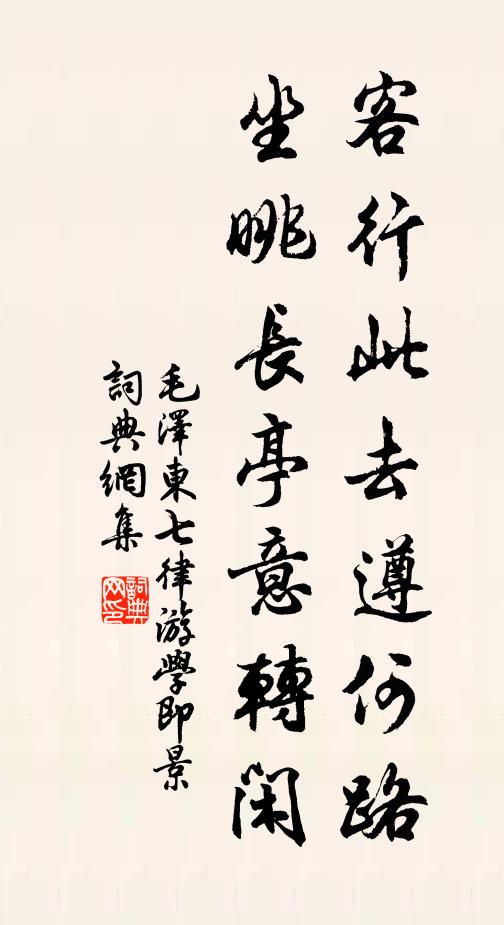 客行此去遵何路
坐眺長亭意轉閑
毛澤東七律游學即景
詞典網集
詞典網印